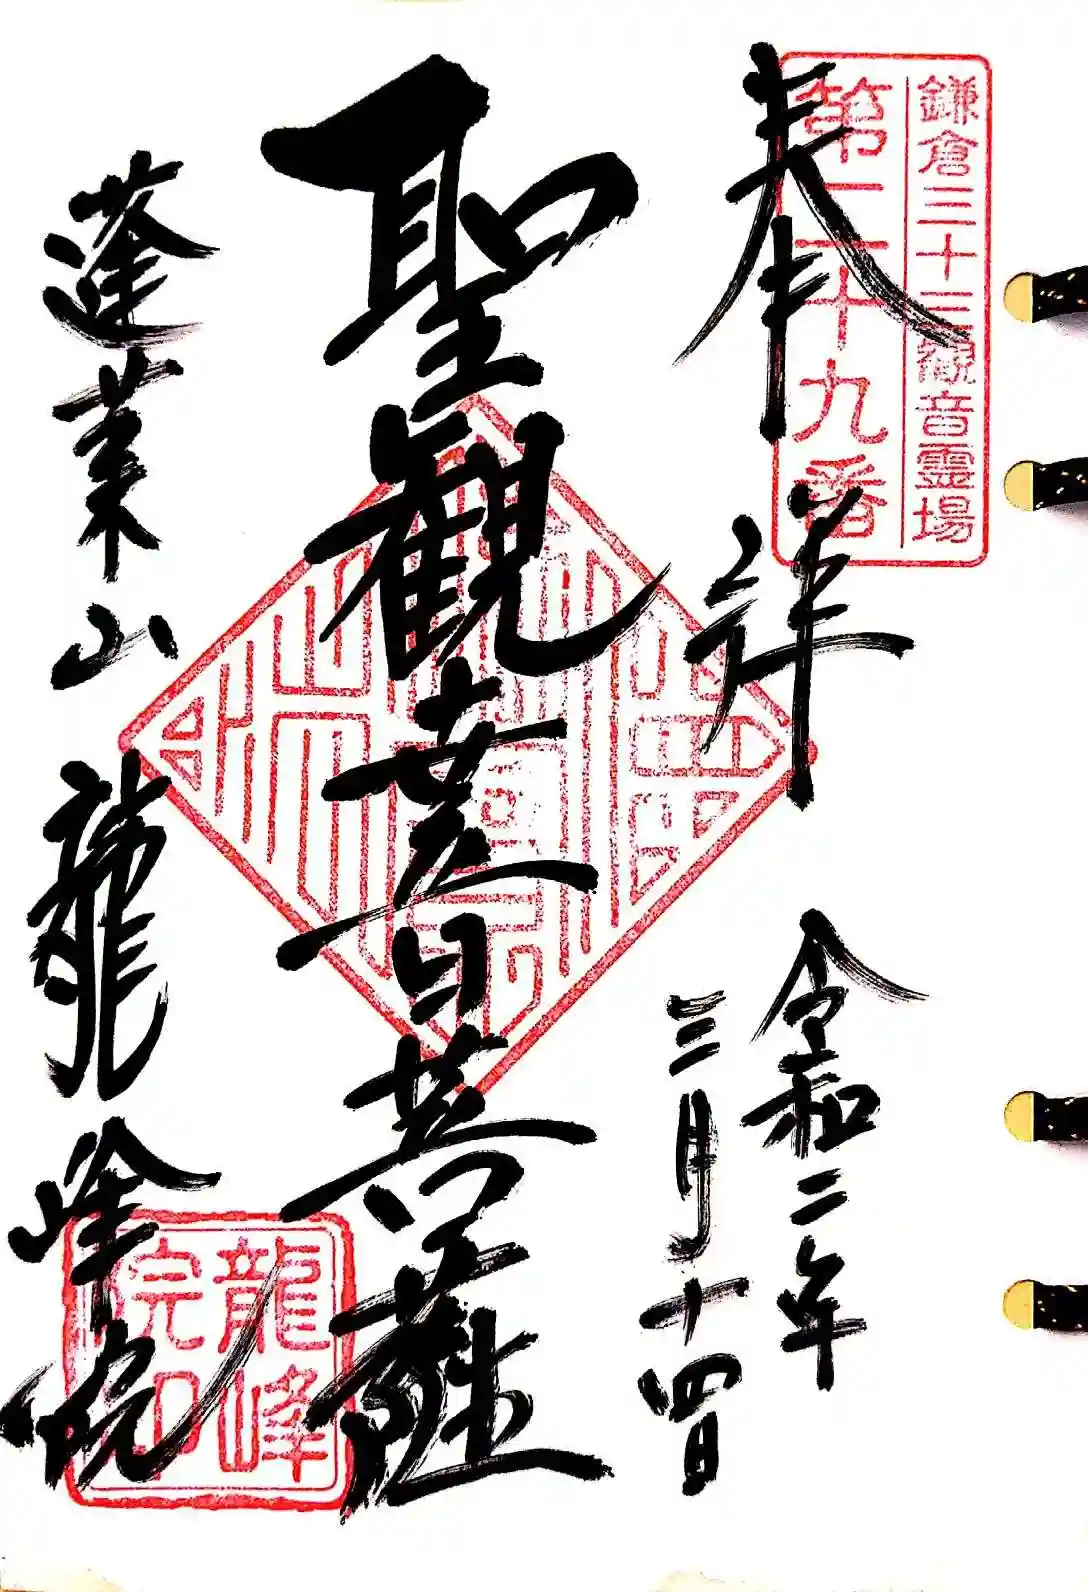 鎌倉三十三観音霊場
第二十九番
奉拝
令和二年
三月十四日
聖観世音菩薩
蓬莱山 龍峰院
龍峰
院印